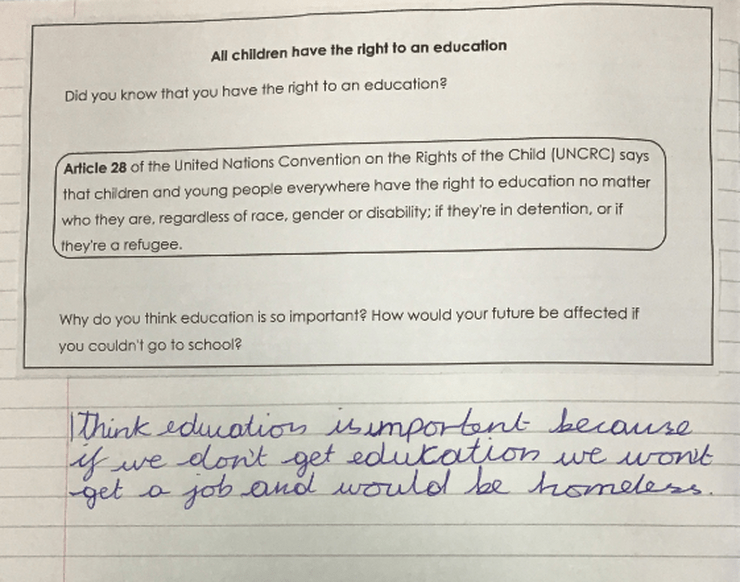 All children have the right to an education
Did you know that you have the right to an education?
Article 28 of the United Nations Convention on the Rights of the Child (UNCRC) says
that children and young people everywhere have the right to education no matter
who they are, regardless of race, gender or disability; if they're in detention, or if
they're a refugee.
Why do you think education is so important? How would your future be affected if
you couldn't go to school?
I think education is importent because
if we don't get edukation we won't
get a job and would be homeless.